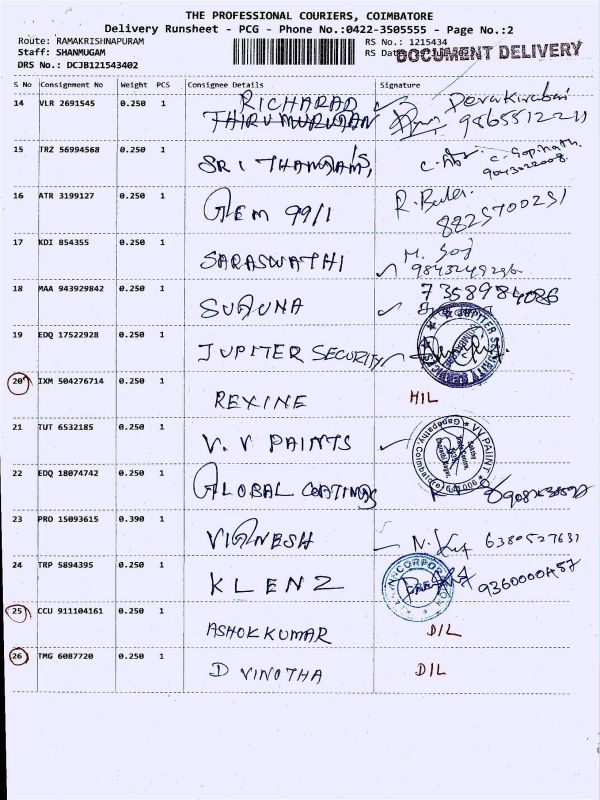 THE PROFESSIONAL COURIERS, COIMBATORE
Delivery Runsheet - PCG - Phone No.:0422-3505555 - Page No.:2
Route: RAMAKRISHNAPURAM RS No.: 1215434
Staff: SHANMUGAM RS Dat DOCUMENT DELIVERY
DRS No.: DCJB121543402
S No Consignment No Weight PCS Consignee Details Signature
14 VLR 2691545 0.250 1 RICHARAD
THIRUMURUGAN 9865512211
15 TRZ 56994568 0.250 1 SRI THANGAM'S, C. Gopinath.
16 ATR 3199127 0.250 1 GEM 99/1 R. Bala.
8825700251
17 KDI 854355 0.250 1 SARASWATHI M.
9843249296
18 MAA 943929842 0.250 1 SUGUNA 7358984086
19 EDQ 17522928 0.250 1 JUPITER SECURITY JUPITER SECURITY SERVICES
20 IXM 504276714 0.250 1 REXINE HIL
21 TUT 6532185 0.250 1 V. V PAINTS VV PAINT
Ganapathy, Coimbatore
22 EDQ 18074742 0.250 1 GLOBAL COATINGS
23 PRO 15093615 0.390 1 VIGNESH N. 6380527631
24 TRP 5894395 0.250 1 KLENZ N. CORPORATION
9360000457
25 CCU 911104161 0.250 1 ASHOK KUMAR DIL
26 TMG 6087720 0.250 1 D VINOTHA DIL